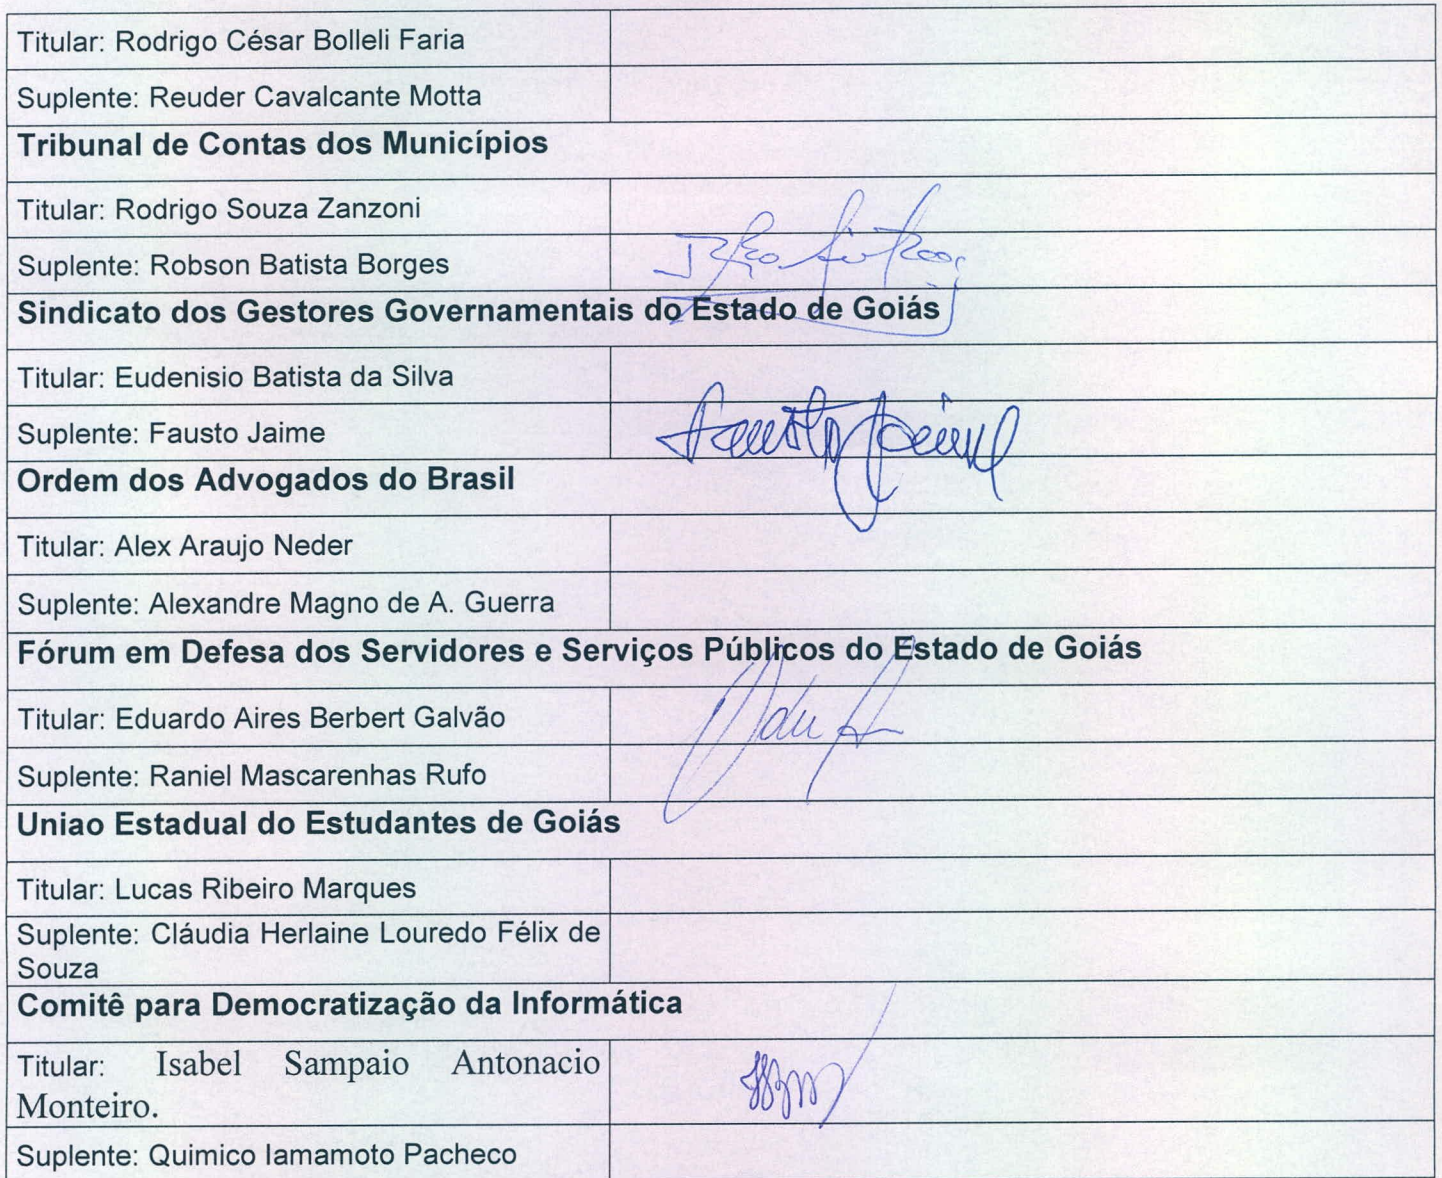 Titular: Rodrigo César Bolleli Faria
Suplente: Reuder Cavalcante Motta
Tribunal de Contas dos Municípios
Titular: Rodrigo Souza Zanzoni
Suplente: Robson Batista Borges
Sindicato dos Gestores Governamentais do Estado de Goiás
Titular: Eudenisio Batista da Silva
Suplente: Fausto Jaime
Fausto Jaime
Ordem dos Advogados do Brasil
Titular: Alex Araujo Neder
Suplente: Alexandre Magno de A. Guerra
Fórum em Defesa dos Servidores e Serviços Públicos do Estado de Goiás
Titular: Eduardo Aires Berbert Galvão
Suplente: Raniel Mascarenhas Rufo
Uniao Estadual do Estudantes de Goiás
Titular: Lucas Ribeiro Marques
Suplente: Cláudia Herlaine Louredo Félix de
Souza
Comitê para Democratização da Informática
Titular: Isabel Sampaio Antonacio
Monteiro.
Suplente: Quimico Iamamoto Pacheco